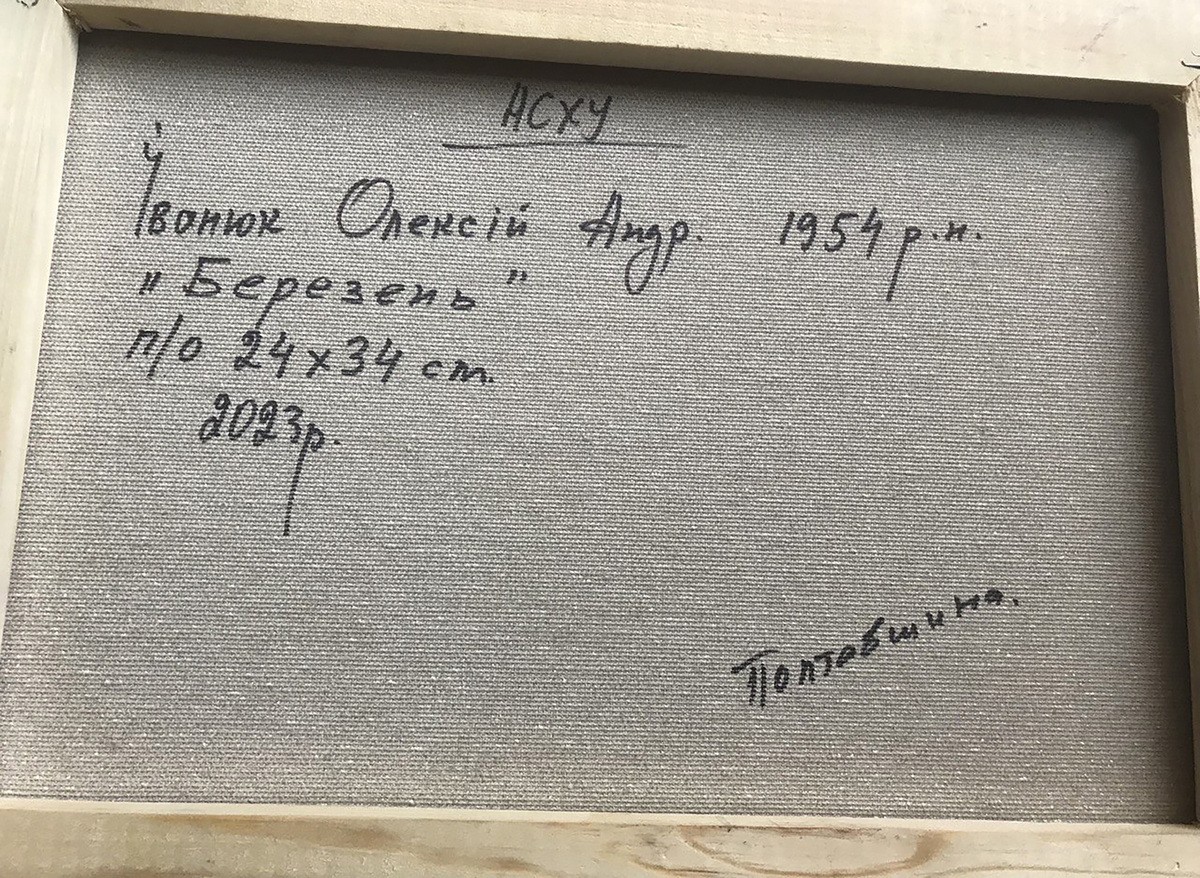 НСХУ
Іванюк Олексій Андр. 1954 р.н.
„Березень"
п/о 24х34 ст.
2023р.
Полтавшина.